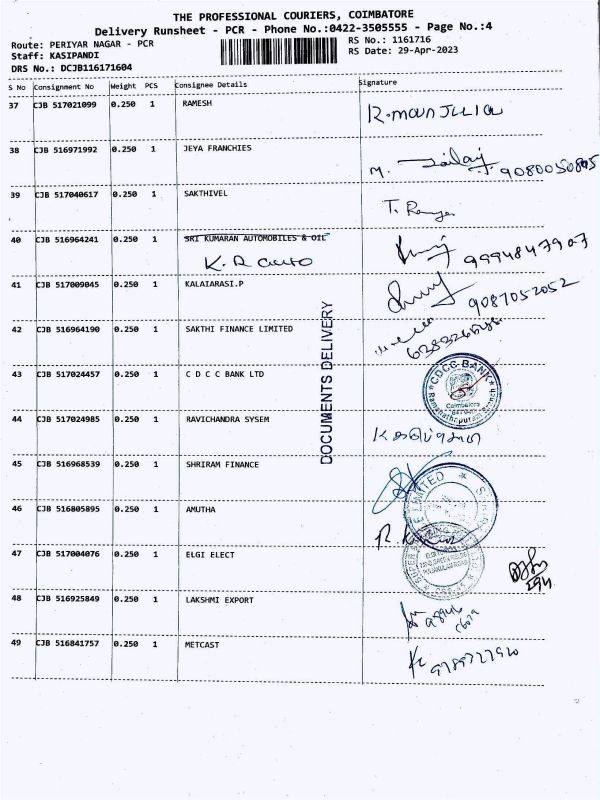 THE PROFESSIONAL COURIERS, COIMBATORE
Delivery Runsheet - PCR - Phone No.:0422-3505555 - Page No.:4
Route: PERIYAR NAGAR - PCR
Staff: KASIPANDI
DRS No.: DCJB116171604
RS No.: 1161716
RS Date: 29-Apr-2023
S No Consignment No Weight PCS Consignee Details Signature
37 CJB 517021099 0.250 1 RAMESH
38 CJB 516971992 0.250 1 JEYA FRANCHIES M. 9080050805
39 CJB 517040617 0.250 1 SAKTHIVEL T. Ramya
40 CJB 516964241 0.250 1 SRI KUMARAN AUTOMOBILES & OIL 9994847907
K.R auto
41 CJB 517009045 0.250 1 KALAIARASI.P 9087052052
42 CJB 516964190 0.250 1 SAKTHI FINANCE LIMITED
43 CJB 517024457 0.250 1 C D C C BANK LTD CDCC BANK Ramanathapuram Branch Coimbatore
44 CJB 517024985 0.250 1 RAVICHANDRA SYSEM
45 CJB 516968539 0.250 1 SHRIRAM FINANCE LIMITED
46 CJB 516805895 0.250 1 AMUTHA R. Kumar
47 CJB 517004076 0.250 1 ELGI ELECT
48 CJB 516925849 0.250 1 LAKSHMI EXPORT
49 CJB 516841757 0.250 1 METCAST 9789727920
DOCUMENTS DELIVERY